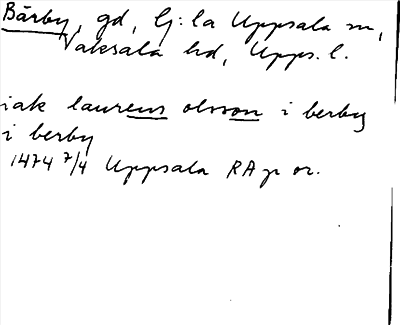 Bärby, gd, Gj:la Uppsala sn,
Vaksala hd, Upps. l.
iak laurens olsson i berby
i berby
1474 7/4 Uppsala RAp or.